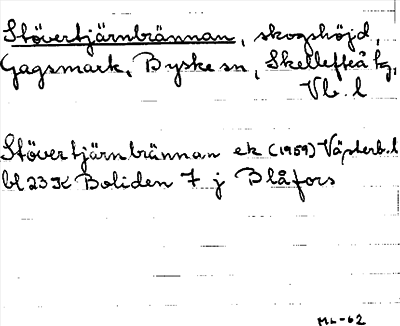 Stövertjärnbrännan, skogshöjd,
Gagsmark, Byske sn, Skellefteå kg,
Vb. l
Stövertjärnbrännan ek (1959) Västerb. l
bl 23 K Boliden 7 j Blåfors
ML-62